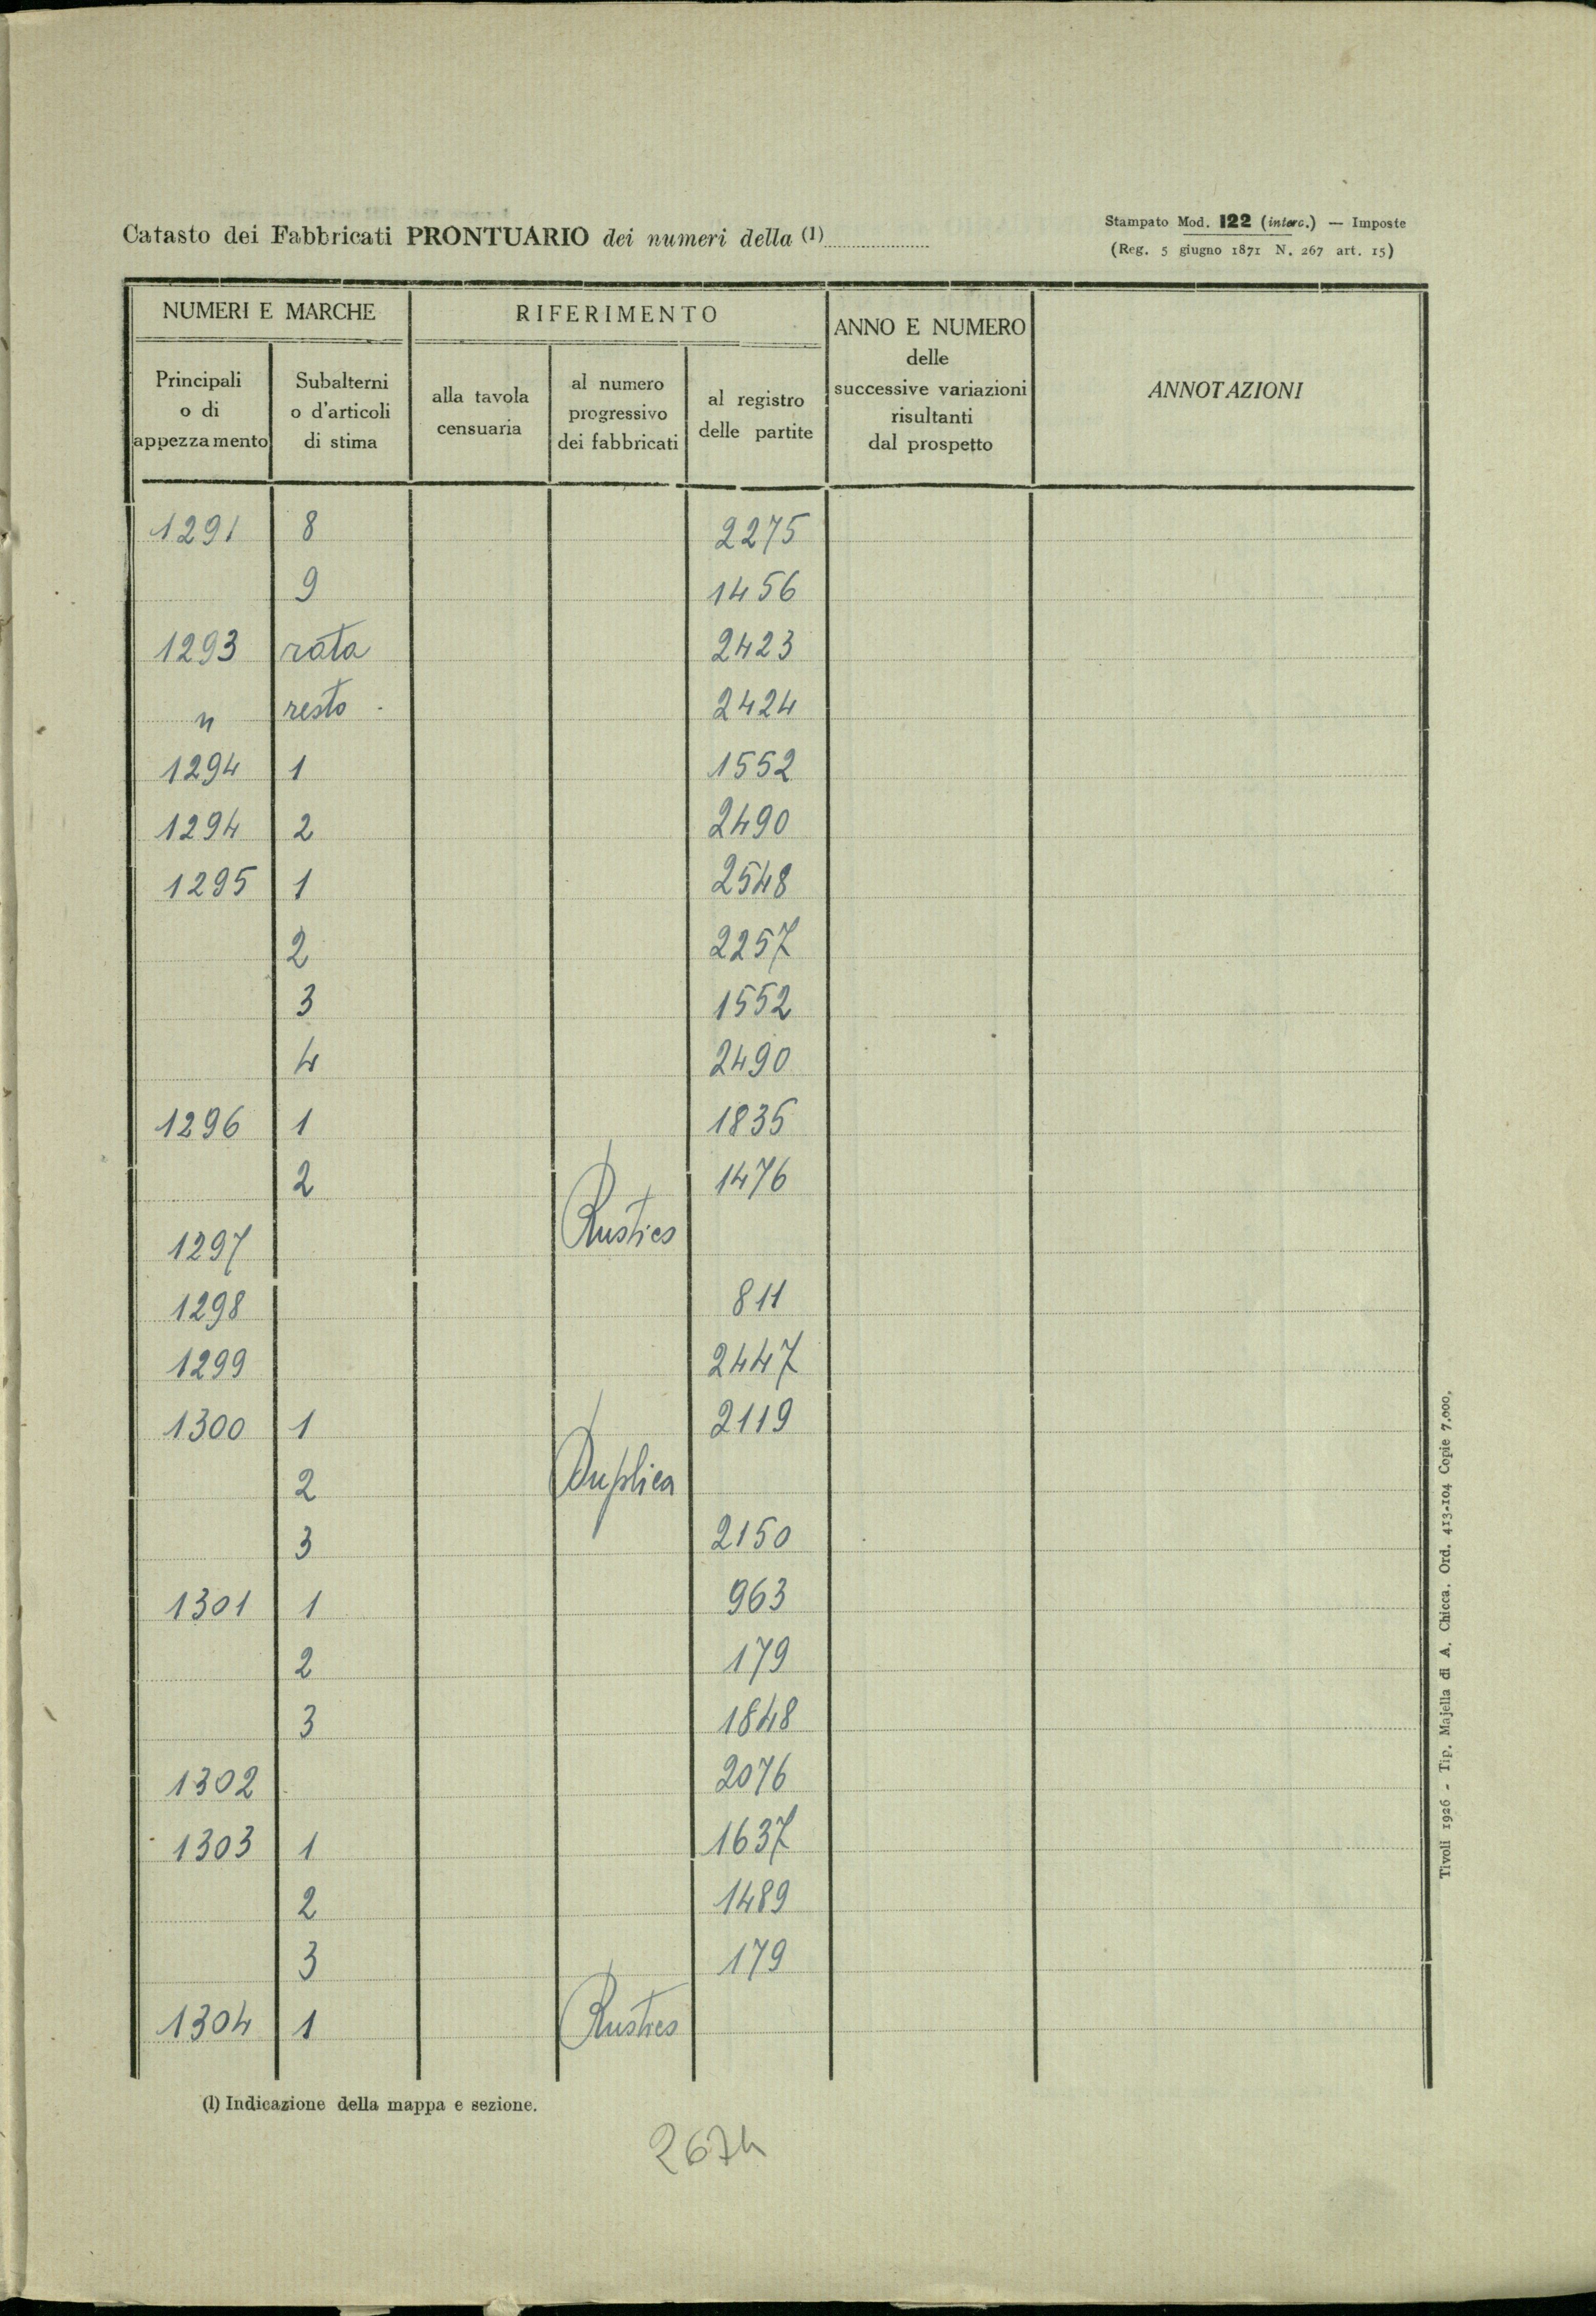 Catasto dei Fabbricati PRONTUARIO dei numeri della (1)
Stampato Mod. 122 (interc.) — Imposte
(Reg. 5 giugno 1871 N. 267 art. 15)
NUMERI E MARCHE
RIFERIMENTO
ANNO E NUMERO
delle
successive variazioni
risultanti
dal prospetto
ANNOTAZIONI
Principali
o di
appezzamento
Subalterni
o d'articoli
di stima
alla tavola
censuaria
al numero
progressivo
dei fabbricati
al registro
delle partite
1291 8 2275
9 1456
1293 rata 2423
" resto 2424
1294 1 1552
1294 2 2490
1295 1 2548
2 2257
3 1552
4 2490
1296 1 1835
2 1476
1297 Rustico
1298 811
1299 2447
1300 1 2119
2 Duplica
3 2150
1301 1 963
2 179
3 1848
1302 2076
1303 1 1637
2 1489
3 179
1304 1 Rustico
(1) Indicazione della mappa e sezione.
2674
Tivoli 1926 - Tip. Majella di A. Chicca. Ord. 413-104 Copie 7.000.